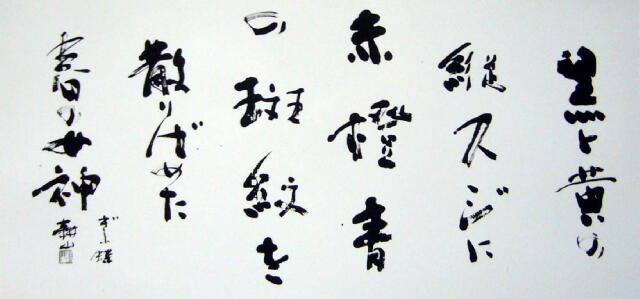 黒と黄の
縦スジに
赤橙青
の斑紋を
散りばめた
春の女神
ぎふ蝶